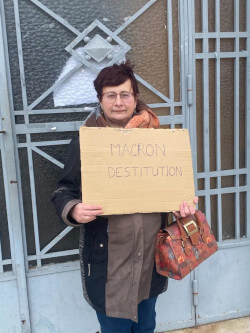 MACRON
DESTITUTION